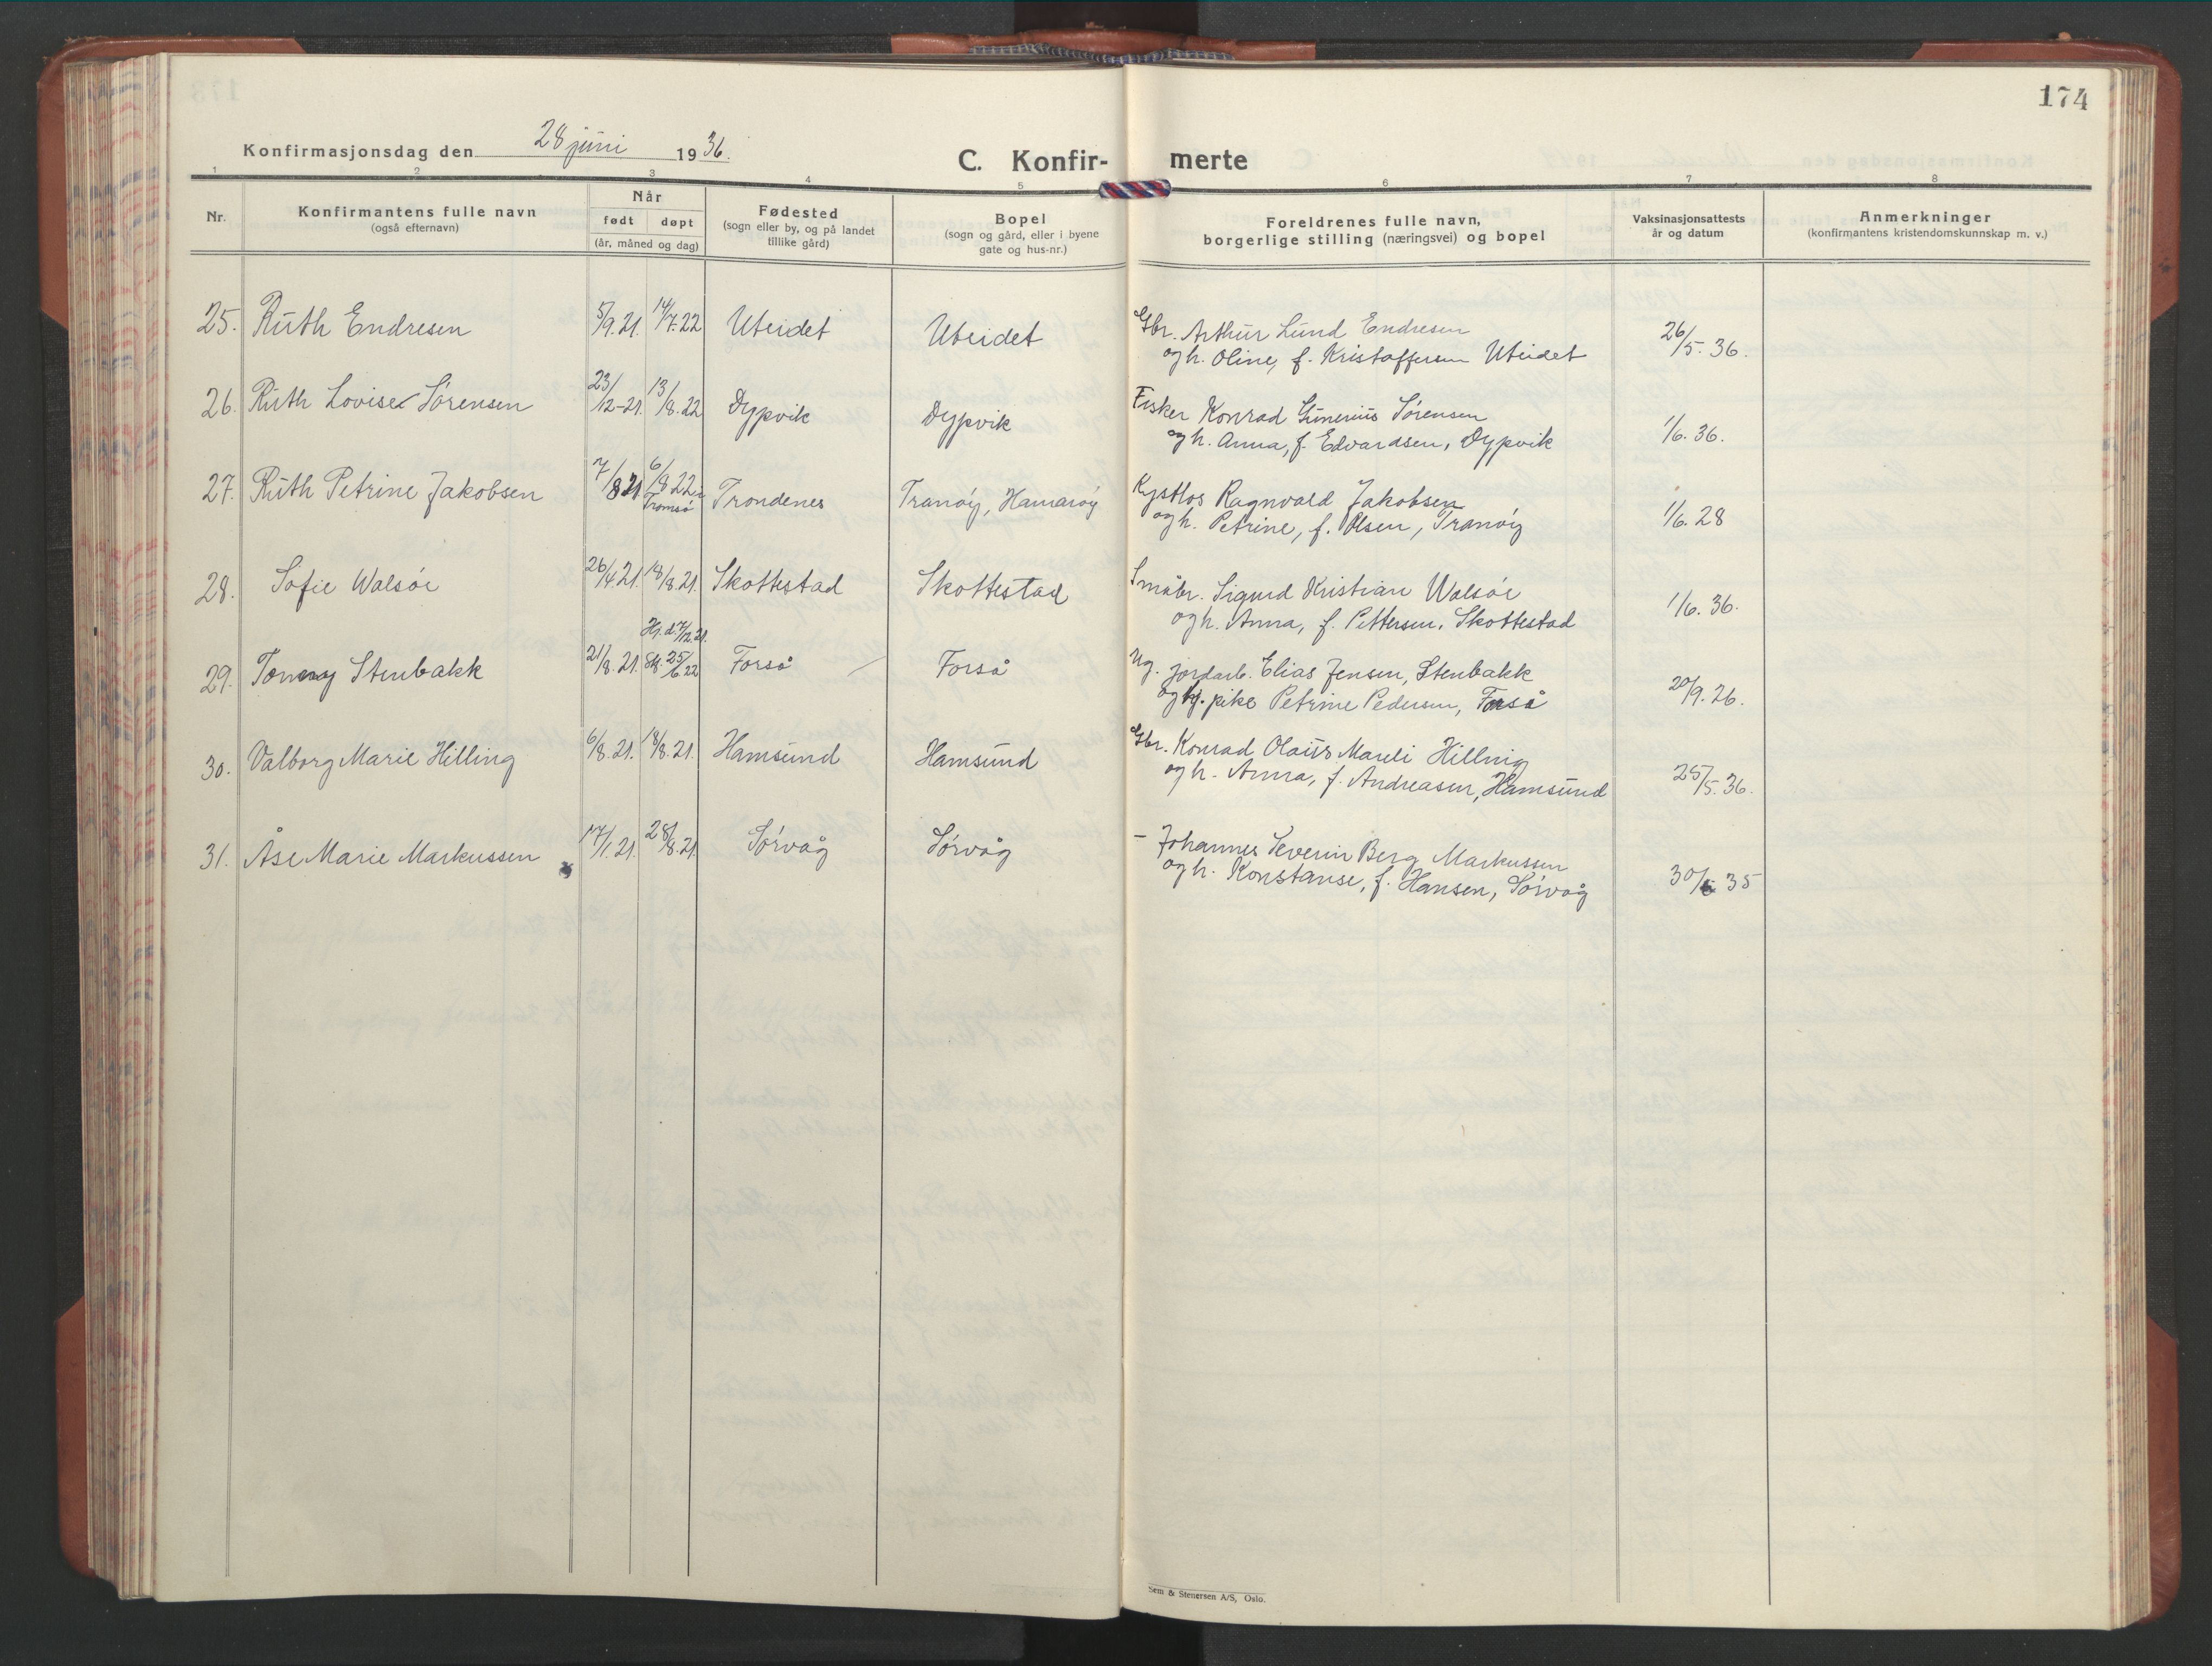 174
Konfirmasjonsdag den 28 juni 1936.
C. Konfir- merte
1 2 3 4 5 6 7 8
Nr.
Konfirmantens fulle navn
(også efternavn)
Når
født døpt
(år, måned og dag)
Fødested
(sogn eller by, og på landet
tillike gård)
Bopel
(sogn og gård, eller i byene
gate og hus-nr.)
Foreldrenes fulle navn,
borgerlige stilling (næringsvei) og bopel
Vaksinasjonsattests
år og datum
Anmerkninger
(konfirmantens kristendomskunnskap m. v.)
25. Ruth Endresen 5/9.21. 14/7.22 Uteidet Uteidet Gbr. Arthur Lund Endresen
og h. Oline, f. Kristoffersen Uteidet 26/5.36.
26. Ruth Lovise Sørensen 23/12-21. 13/8.22 Dypvik Dypvik Fisker Konrad Gunerius Sørensen
og h. Anna, f. Edvardsen, Dypvik 1/6.36.
27. Ruth Petrine Jakobsen 7/8 21 6/8 22 i Tromsø Trondenes Tranøy, Hamarøy Kystlos Ragnvald Jakobsen
og h. Petrine, f. Olsen, Tranøy 1/6.28
28. Sofie Walsøe 26/4.21. 18/8.21. Skottestad Skottestad Småbr. Sigurd Kristian Walsøe
og h. Anna, f. Pettersen, Skottestad 1/6.36.
29. Tommy Stenbakk 21/8.21. Hj.d. 7/12.21. St. 25/6 22 Forså Forså Ug. jordarb. Elias Jensen, Stenbakk
og hj. pike Petrine Pedersen, Forså 20/9.26.
30. Valborg Marie Hilling 6/8.21. 18/8.21. Hamsund Hamsund Gbr. Konrad Olaus Mareli Hilling
og h. Anna, f. Andreasen, Hamsund 25/5.36.
31. Åse Marie Markussen 17/1.21. 28/8.21. Sørvåg Sørvåg – Johannes Severin Berg Markussen
og h. Konstanse, f. Hansen, Sørvåg 30/6 35
Sem & Stenersen A/S, Oslo.